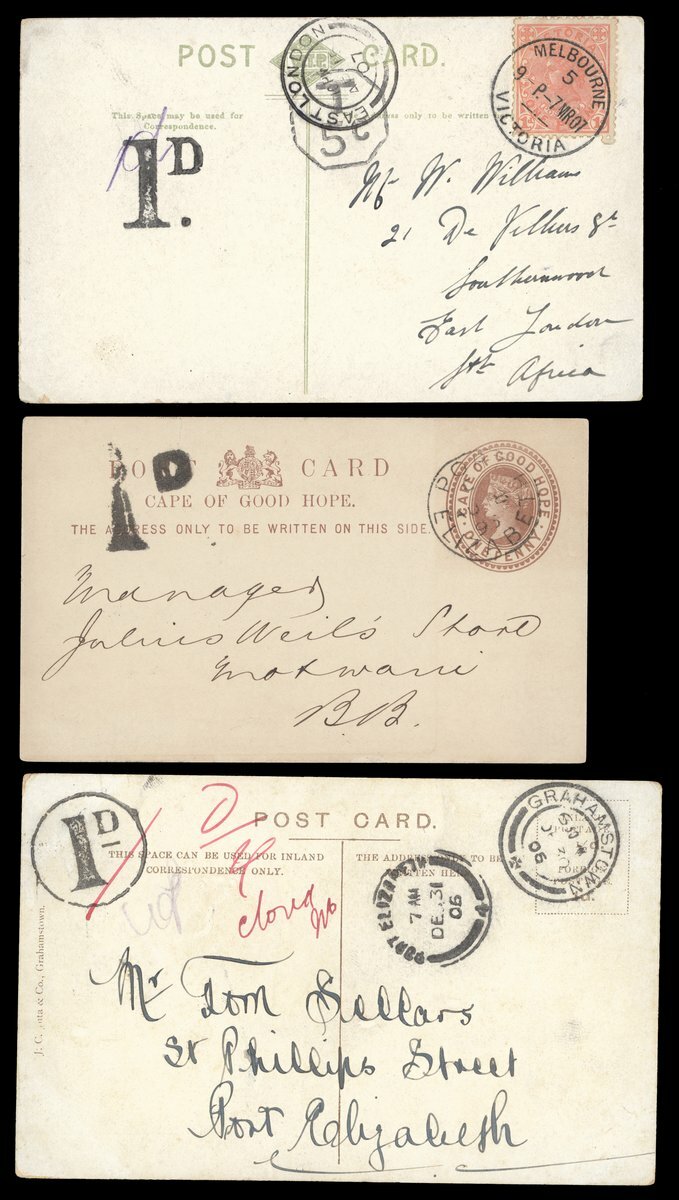 POST CARD.
This Space may be used for
Correspondence.
Address only to be written
EAST LONDON
07
52
MELBOURNE
5
9-P-7MR07
VICTORIA
d
1D.
Mr W. Williams
21 De Villiers St.
Southernwood
East London
Sth Africa
POST CARD
CAPE OF GOOD HOPE.
THE ADDRESS ONLY TO BE WRITTEN ON THIS SIDE.
1D
CAPE OF GOOD HOPE
ONE PENNY
Manager
Julius Weil's Store
B.B.
POST CARD.
THIS SPACE CAN BE USED FOR INLAND
CORRESPONDENCE ONLY.
THE ADDRESS ONLY TO BE
WRITTEN HERE
1D
1D
GRAHAMSTOWN
06
PORT ELIZABETH
7 AM
DE 31
06
J. C. & Co., Grahamstown.
Mr Tom Sellars
St Phillips Street
Port Elizabeth